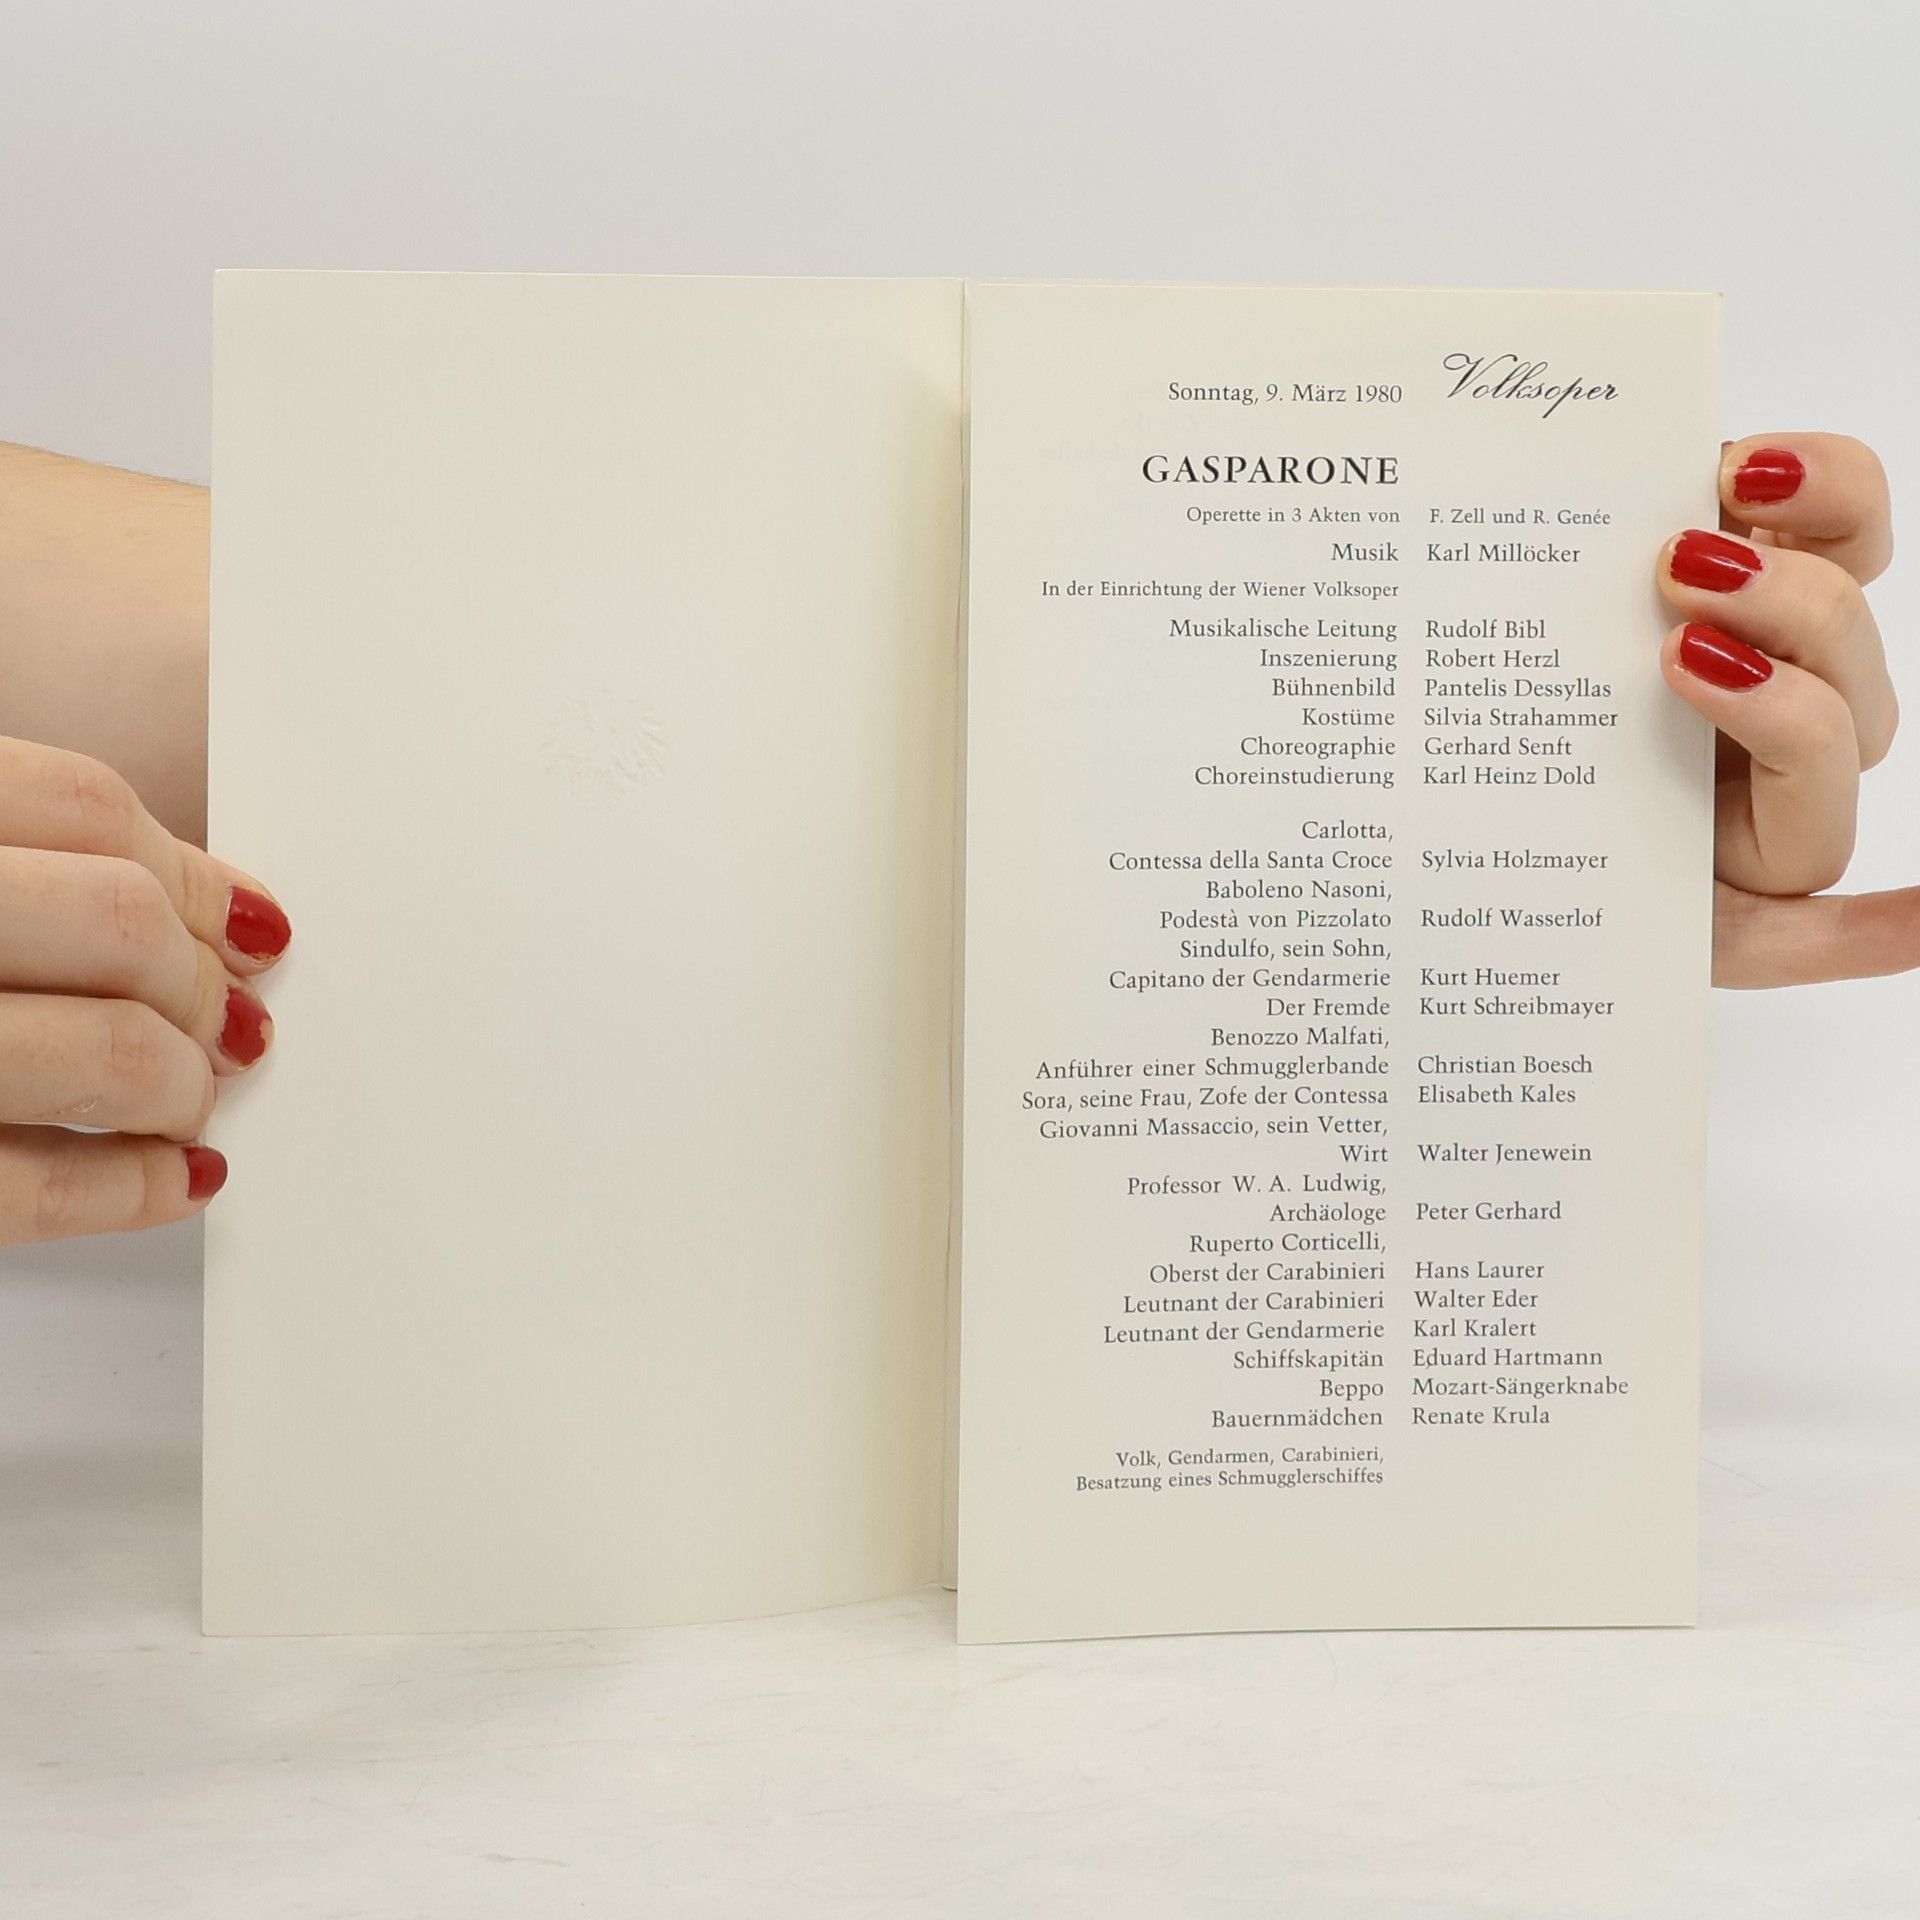 Sonntag, 9. März 1980 Volksoper
GASPARONE
Operette in 3 Akten von F. Zell und R. Genée
Musik Karl Millöcker
In der Einrichtung der Wiener Volksoper
Musikalische Leitung Rudolf Bibl
Inszenierung Robert Herzl
Bühnenbild Pantelis Dessyllas
Kostüme Silvia Strahammer
Choreographie Gerhard Senft
Choreinstudierung Karl Heinz Dold
Carlotta,
Contessa della Santa Croce Sylvia Holzmayer
Baboleno Nasoni,
Podestà von Pizzolato Rudolf Wasserlof
Sindulfo, sein Sohn,
Capitano der Gendarmerie Kurt Huemer
Der Fremde Kurt Schreibmayer
Benozzo Malfati,
Anführer einer Schmugglerbande Christian Boesch
Sora, seine Frau, Zofe der Contessa Elisabeth Kales
Giovanni Massaccio, sein Vetter,
Wirt Walter Jenewein
Professor W. A. Ludwig,
Archäologe Peter Gerhard
Ruperto Corticelli,
Oberst der Carabinieri Hans Laurer
Leutnant der Carabinieri Walter Eder
Leutnant der Gendarmerie Karl Kralert
Schiffskapitän Eduard Hartmann
Beppo Mozart-Sängerknabe
Bauernmädchen Renate Krula
Volk, Gendarmen, Carabinieri,
Besatzung eines Schmugglerschiffes